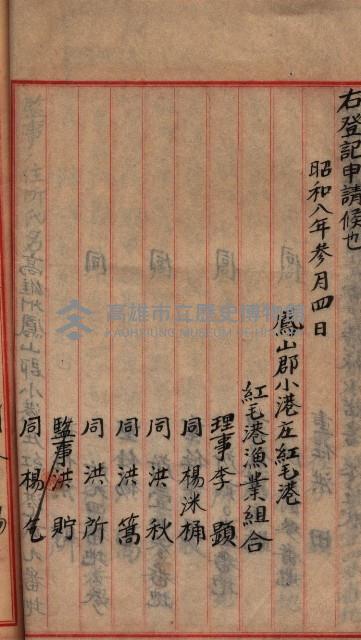 右登記申請候也
昭和八年參月四日
鳳山郡小港庄紅毛港
紅毛港漁業組合
理事 李 顕
同 楊洣桶
同 洪 秋
同 洪 篙
同 洪 所
監事 洪 貯
同 楊 乞
高雄市立歷史博物館
KAOHSIUNG MUSEUM OF HISTORY